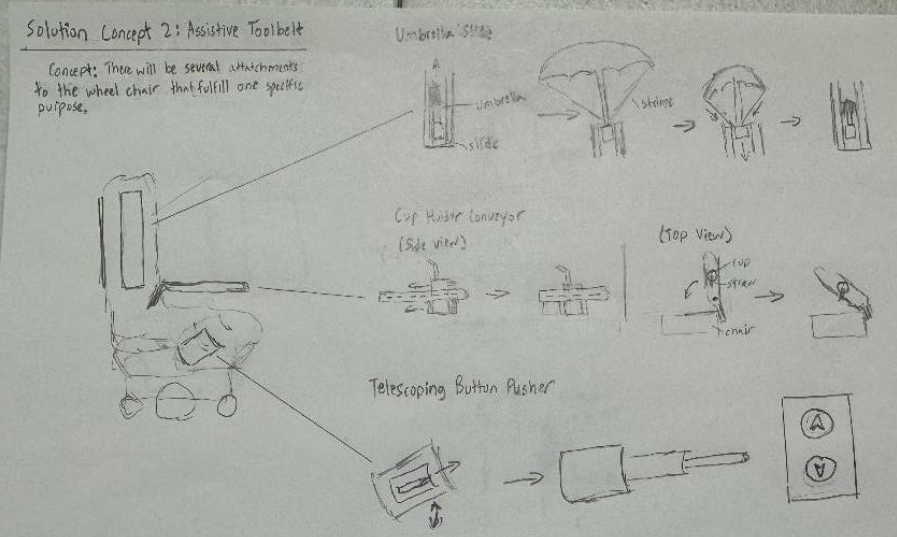 Solution Concept 2: Assistive Toolbelt
Concept: There will be several attatchments
to the wheel chair that fulfill one specific
purpose.
Umbrella Slide
umbrella
slide
strings
Cup Holder Conveyor
(Side View)
(Top View)
cup
straw
chair
Telescoping Button Pusher